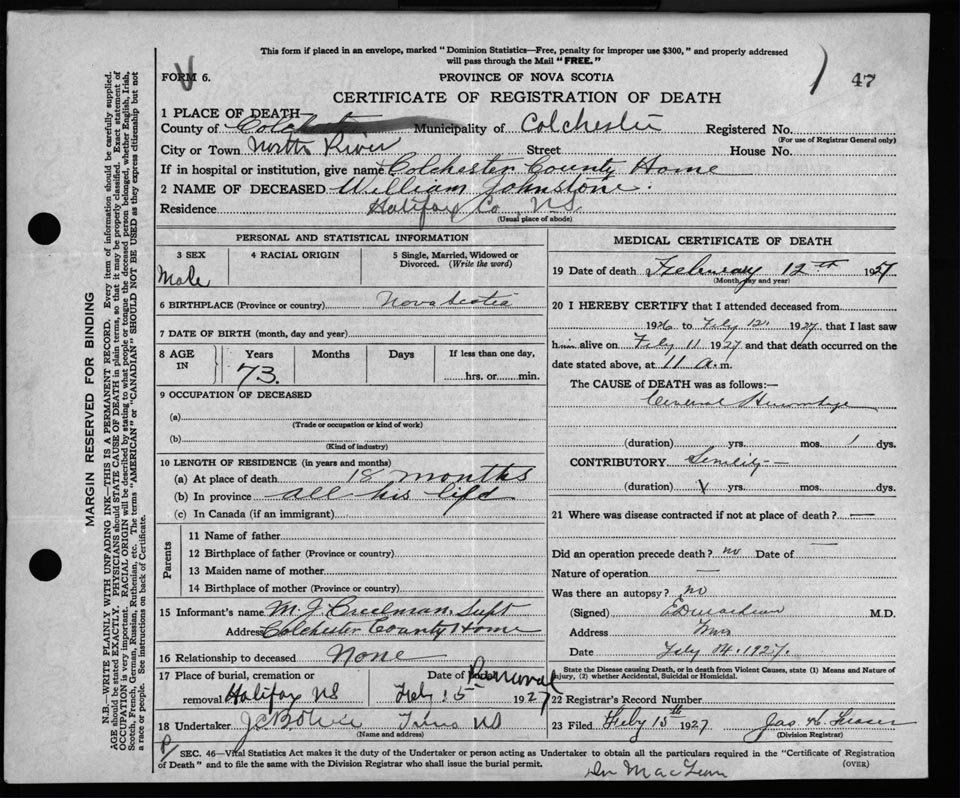 This form if placed in an envelope, marked "Dominion Statistics—Free, penalty for improper use $300," and properly addressed
will pass through the Mail "FREE."
FORM 6.
PROVINCE OF NOVA SCOTIA
47
CERTIFICATE OF REGISTRATION OF DEATH
1 PLACE OF DEATH—
County of Municipality of Colchester Registered No.
(For use of Registrar General only)
City or Town North River Street House No.
If in hospital or institution, give name Colchester County Home
2 NAME OF DECEASED William Johnstone.
Residence Halifax Co. N.S.
(Usual place of abode)
PERSONAL AND STATISTICAL INFORMATION
3 SEX
Male
4 RACIAL ORIGIN
5 Single, Married, Widowed or
Divorced. (Write the word)
6 BIRTHPLACE (Province or country) Nova Scotia
7 DATE OF BIRTH (month, day and year)
8 AGE IN
Years Months Days If less than one day,
73. hrs. or min.
9 OCCUPATION OF DECEASED
(a)
(Trade or occupation or kind of work)
(b)
(Kind of industry)
10 LENGTH OF RESIDENCE (in years and months)
(a) At place of death 18 months
(b) In province all his life
(c) In Canada (if an immigrant)
Parents
11 Name of father
12 Birthplace of father (Province or country)
13 Maiden name of mother
14 Birthplace of mother (Province or country)
15 Informant's name M. J. Creelman, Supt
Address Colchester County Home
16 Relationship to deceased None
17 Place of burial, cremation or Date of Removal
removal Halifax NS Feb 15 1927
18 Undertaker
(Name and address)
MEDICAL CERTIFICATE OF DEATH
19 Date of death February 12th 1927
(Month, day and year)
20 I HEREBY CERTIFY that I attended deceased from
1926 to Feby 12" 1927, that I last saw
him alive on Feby 11 1927 and that death occurred on the
date stated above, at 11 a. m.
The CAUSE of DEATH was as follows:—
(duration) yrs. mos. 1 dys.
CONTRIBUTORY Senility—
(duration) yrs. mos. dys.
21 Where was disease contracted if not at place of death? —
Did an operation precede death? no Date of —
Nature of operation —
Was there an autopsy? no
(Signed) M.D.
Address
Date Feby 14. 1927.
State the Disease causing Death, or in death from Violent Causes, state (1) Means and Nature of
Injury, (2) whether Accidental, Suicidal or Homicidal.
22 Registrar's Record Number
23 Filed Feby 15th 1927 Jas. H. Fraser
(Division Registrar)
SEC. 46—Vital Statistics Act makes it the duty of the Undertaker or person acting as Undertaker to obtain all the particulars required in the "Certificate of Registration
of Death" and to file the same with the Division Registrar who shall issue the burial permit.
(OVER)
MARGIN RESERVED FOR BINDING
N.B.—WRITE PLAINLY WITH UNFADING INK—THIS IS A PERMANENT RECORD. Every item of information should be carefully supplied.
AGE should be stated EXACTLY. PHYSICIANS should STATE CAUSE OF DEATH in plain terms, so that it may be properly classified. Exact statement of
OCCUPATION is very important. RACIAL ORIGIN will be described by stating to what people or tongue the deceased person belonged, whether English, Irish,
Scotch, French, German, Russian, Ruthenian, etc. The terms "AMERICAN" or "CANADIAN" SHOULD NOT BE USED as they express citizenship but not
a race or people. See instructions on back of Certificate.